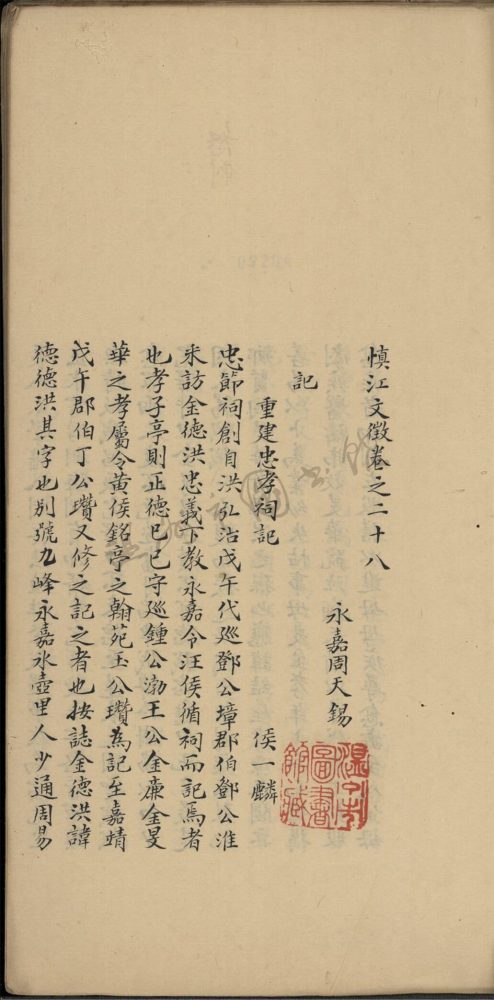 慎江文徵卷之二十八
永嘉周天錫
記
重建忠孝祠記
侯一麟
忠節祠創自洪弘治戊午代廵鄧公璋郡伯鄧公淮
来訪金德洪忠義下教永嘉令汪侯循祠而記焉者
也孝子亭則正德己巳守廵鍾公渤王公金廉金旻
華之孝屬令黄侯銘亭之翰苑王公瓚為記至嘉靖
戊午郡伯丁公瓚又修之記之者也按誌金德洪諱
德德洪其字也别號九峰永嘉氷壺里人少通周易
溫州市
圖書
館藏